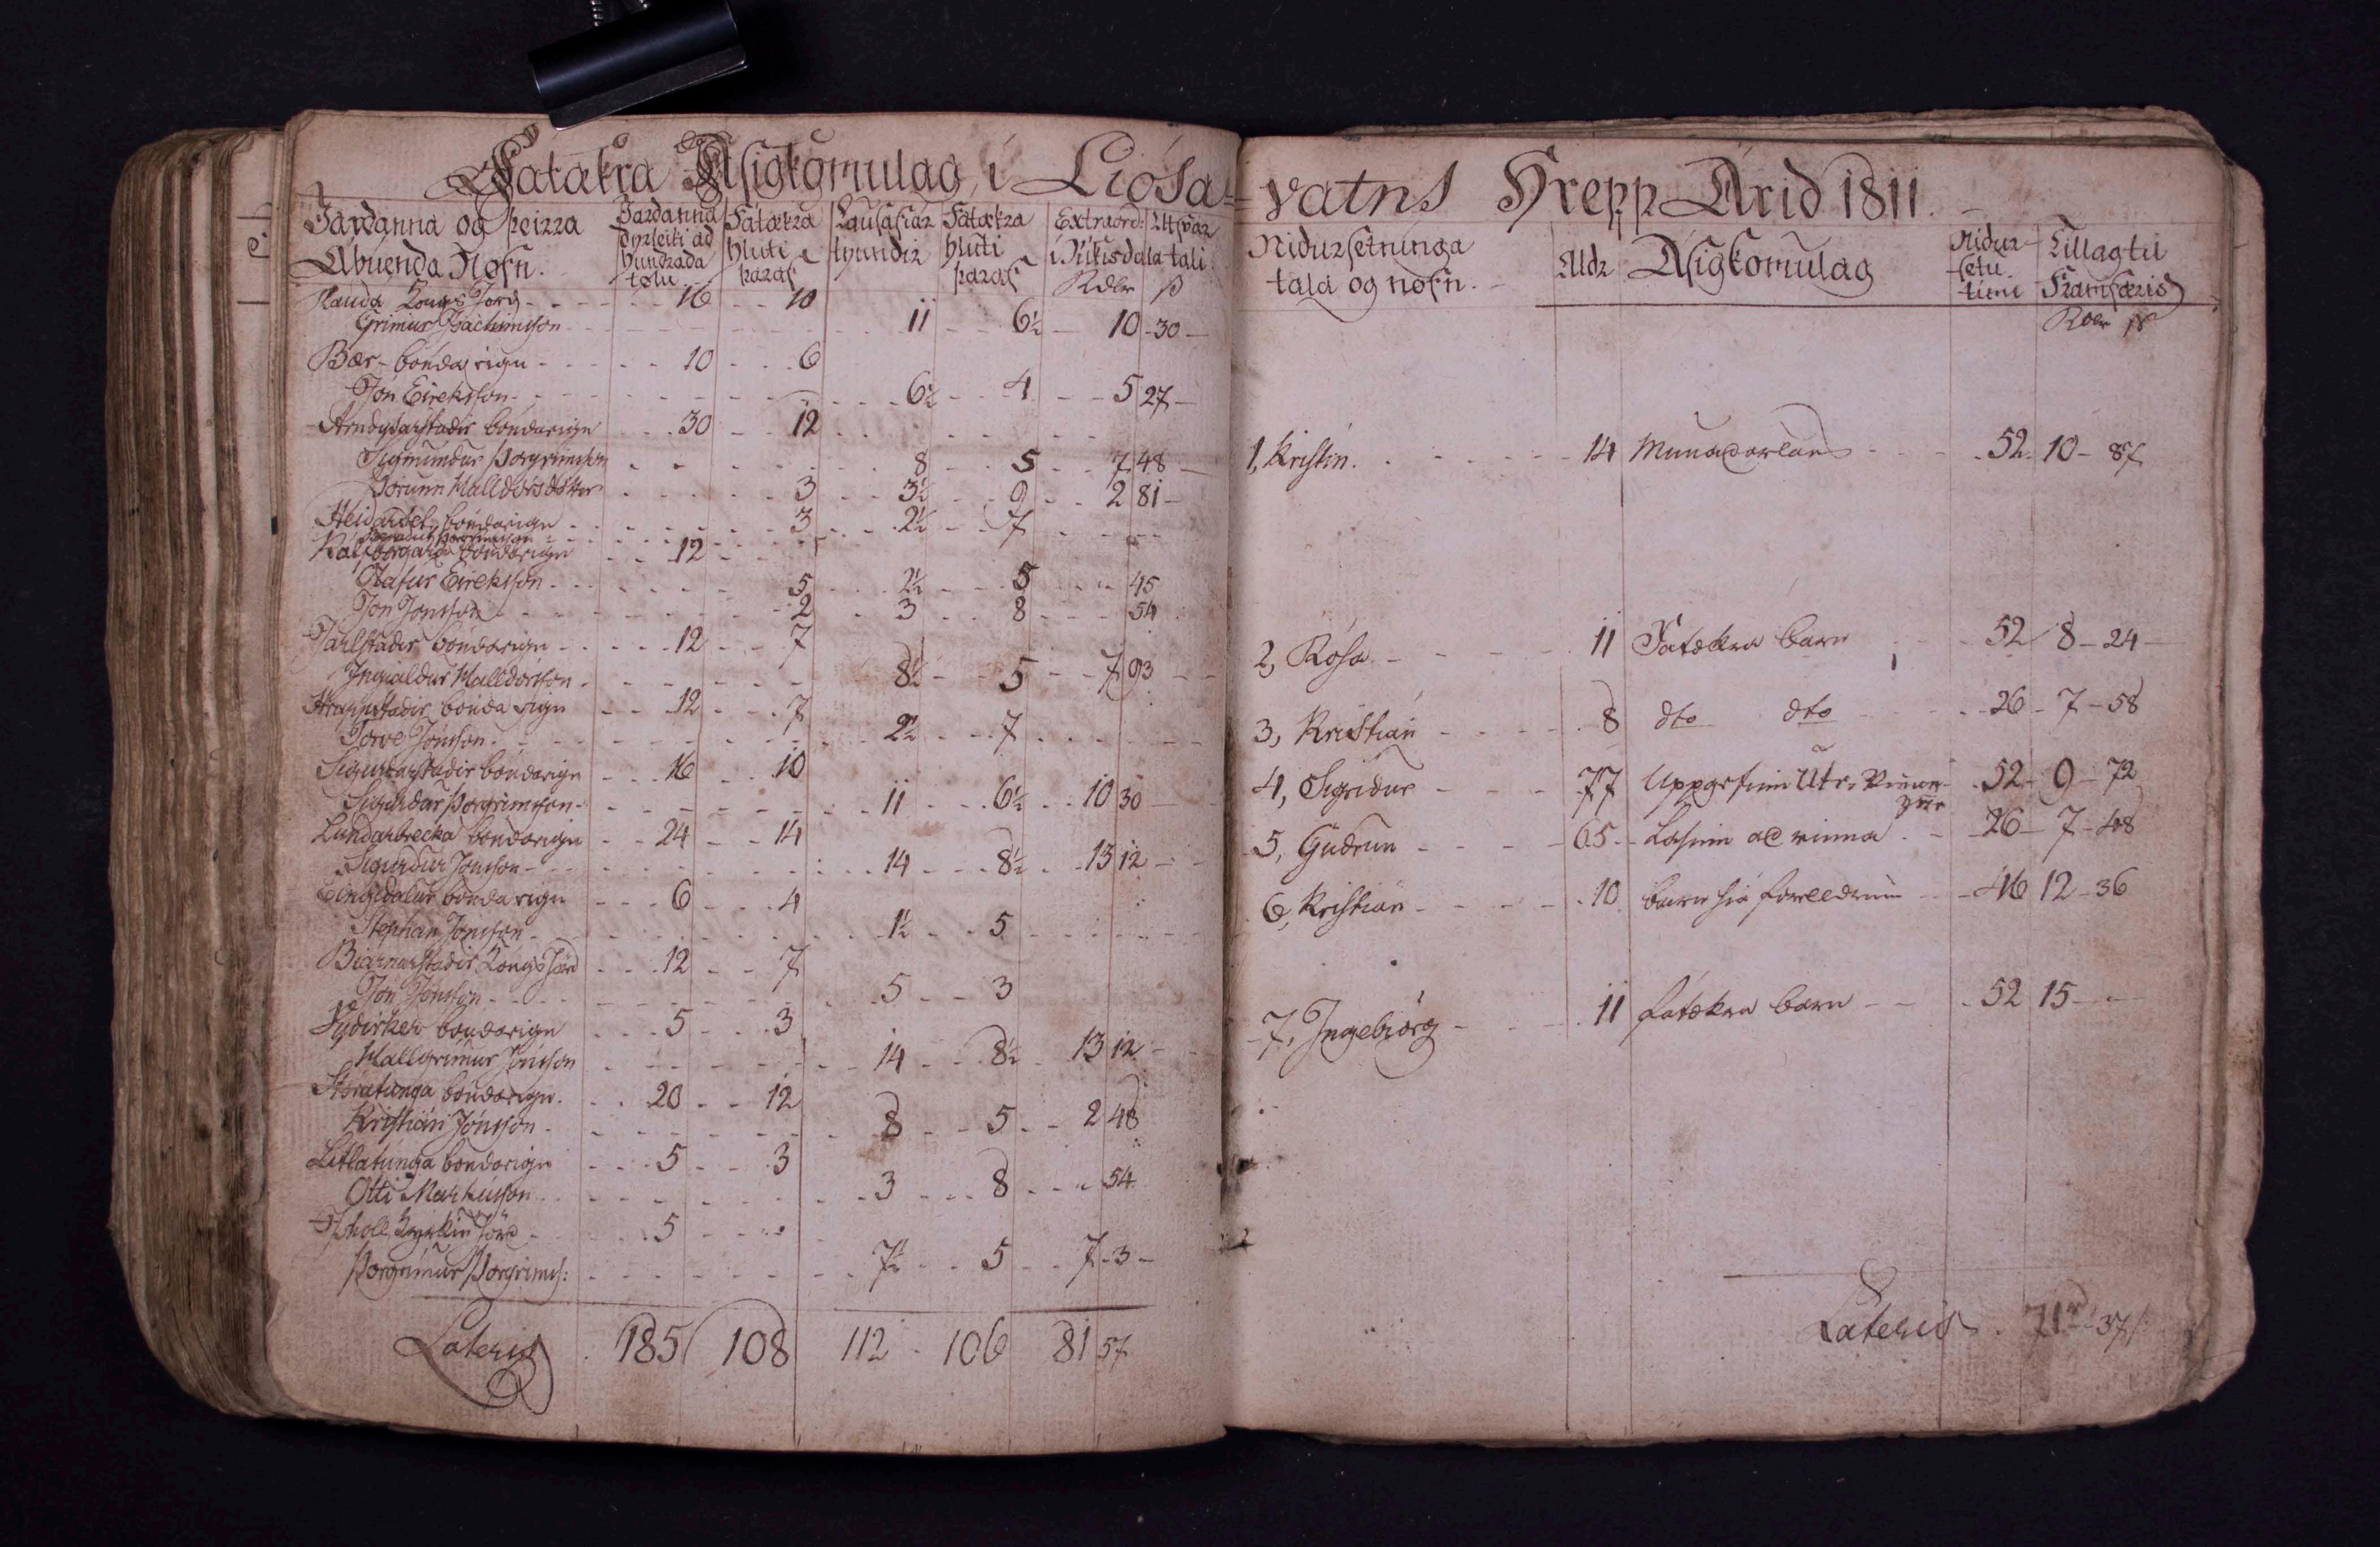 Fatækra Asigkomulag í Liósa-
Jardanna og þeirra
Abúenda Nofn.
Jardanna dyrleiki ad hundrada tolu
Fátækra hluti þaraf
Lausafiár tyundir
Fátækra hluti þaraf
Extraord: Utsvar í Rikisdala tali
Rdlr ß
Rauda Kongs Jörd 16 10
Grimur 11 6½ 10 30
Bær bonda eign 10 6
Jón Eireksson 6½ 4 5 27
Arndysarstadir bondaeign 30 12
Sigmundur Þorgrimsson 8 5 7 48
Jorunn Halldórsdóttir 3 3½ 9 2 81
Heidarsel bondaeign 3 2½ 7
Kalfborgará bondaeign 12
Olafur Eireksson 5 2½ 5 45
Jon Jonsson 2 3 8 54
Jarlstadir bondaeign 12 7
Ingialdur Halldorsson 8½ 5 7 93
Hrappstadir bonda eign 12 7
Torve Jónsson 2½ 7
Sigurdarstadir bondaeign 16 10
Sigurdur Þorgrimsson 11 6½ 10 30
Lundarbrecka bondaeign 24 14
Sigurdur Jonsson 14 8½ 13 12
Engidalur bonda eign 6 4
Stephan Jónsson 1½ 5
Biarnarstadir Kongs Jörd 12 7
Jón Jónsson 5 3
Sydirkes bondaeign 5 3
Hallgrimur Jónsson 14 8½ 13 12
Stóratunga bondaeign 20 12
Kristián Jónsson 8 5 2 48
Litlatunga bondaeign 5 3
Otti Markússon 3 8 54
Ishóll Kyrkiu Jörd 5
Þorgrimur Þorgrims: 7½ 5 7 3
Lateris 185 108 112 106 81 57
vatns Hrepp Árid 1811
Nidursetninga
tala og nofn.
Aldr
Asigkomulag
Nidur-
setu
time
Tillag til
Framfæris
Rdlr ß
1, Kristín 14 Munadarlaus 52 10 87
2, Rósa 11 Fatækra barn 52 8 24
3, Kristián 8 dto dto 26 7 58
4, Sigridur 77 Uppgefinn 52 9 72
5, Gudrun 65 Lasinn ad vinna 26 7 48
6, Kristián 10 barn hiá foreldrum 46 12 36
7, Ingebiörg 11 fatækra barn 52 15
Lateris 71rd 37ß